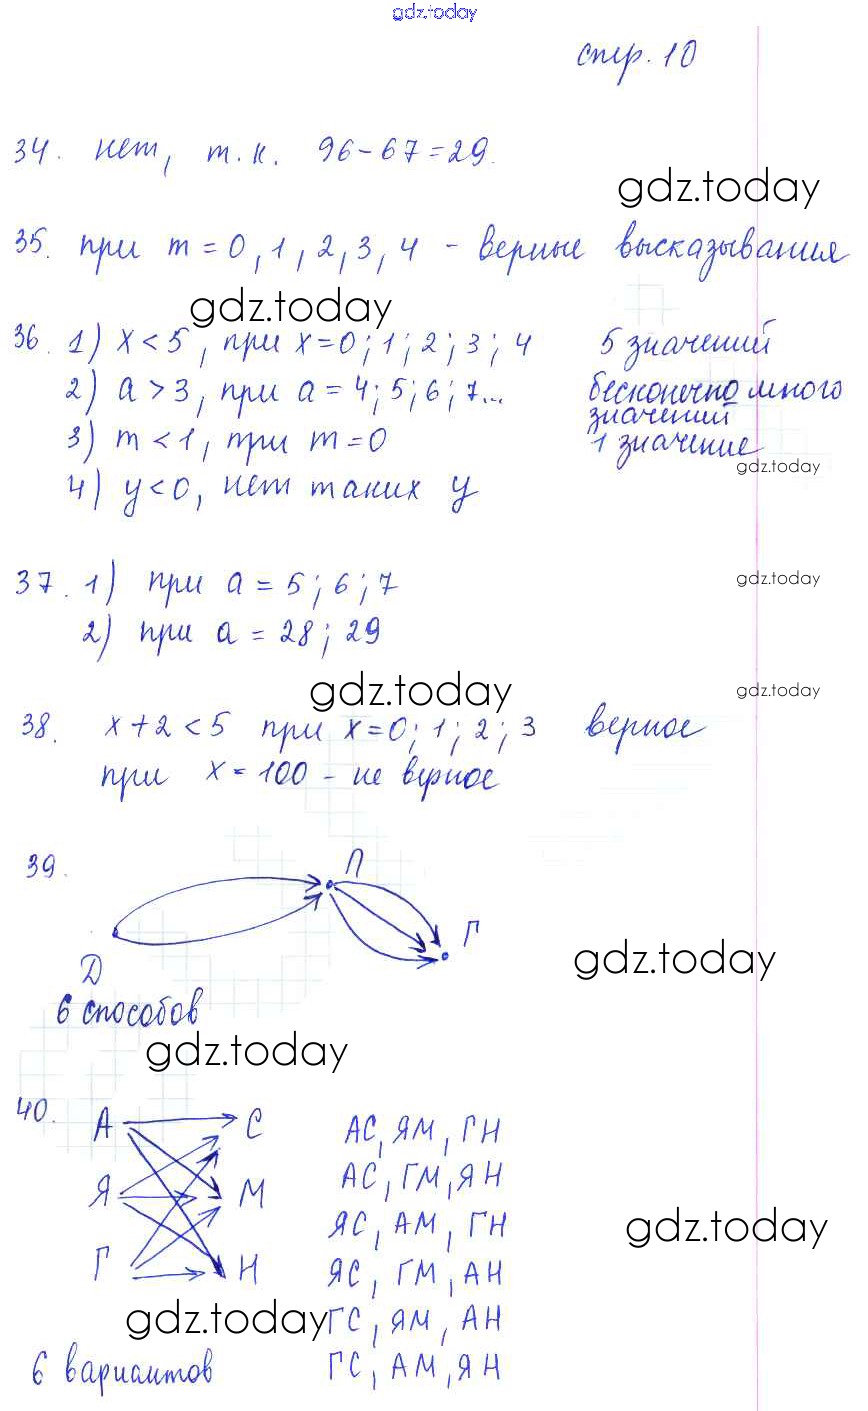 gdz.today
стр. 10
34. нет, т.к. 96-67=29.
gdz.today
35. при m=0, 1, 2, 3, 4 - верные высказывания
gdz.today
36. 1) x<5, при x=0; 1; 2; 3; 4 5 значений
2) a>3, при a=4; 5; 6; 7... бесконечно много
значений
3) m<1, при m=0 1 значение
gdz.today
4) y<0, нет таких y
37. 1) при a=5; 6; 7
gdz.today
2) при a=28; 29
gdz.today
gdz.today
38. x+2<5 при x=0; 1; 2; 3 верное
при x=100 - не верное
39.
П
Г
gdz.today
Д
6 способов
gdz.today
40.
А С АС, ЯМ, ГН
АС, ГМ, ЯН
Я М
ЯС, АМ, ГН
gdz.today
Г Н ЯС, ГМ, АН
gdz.today
ГС, ЯМ, АН
6 вариантов ГС, АМ, ЯН